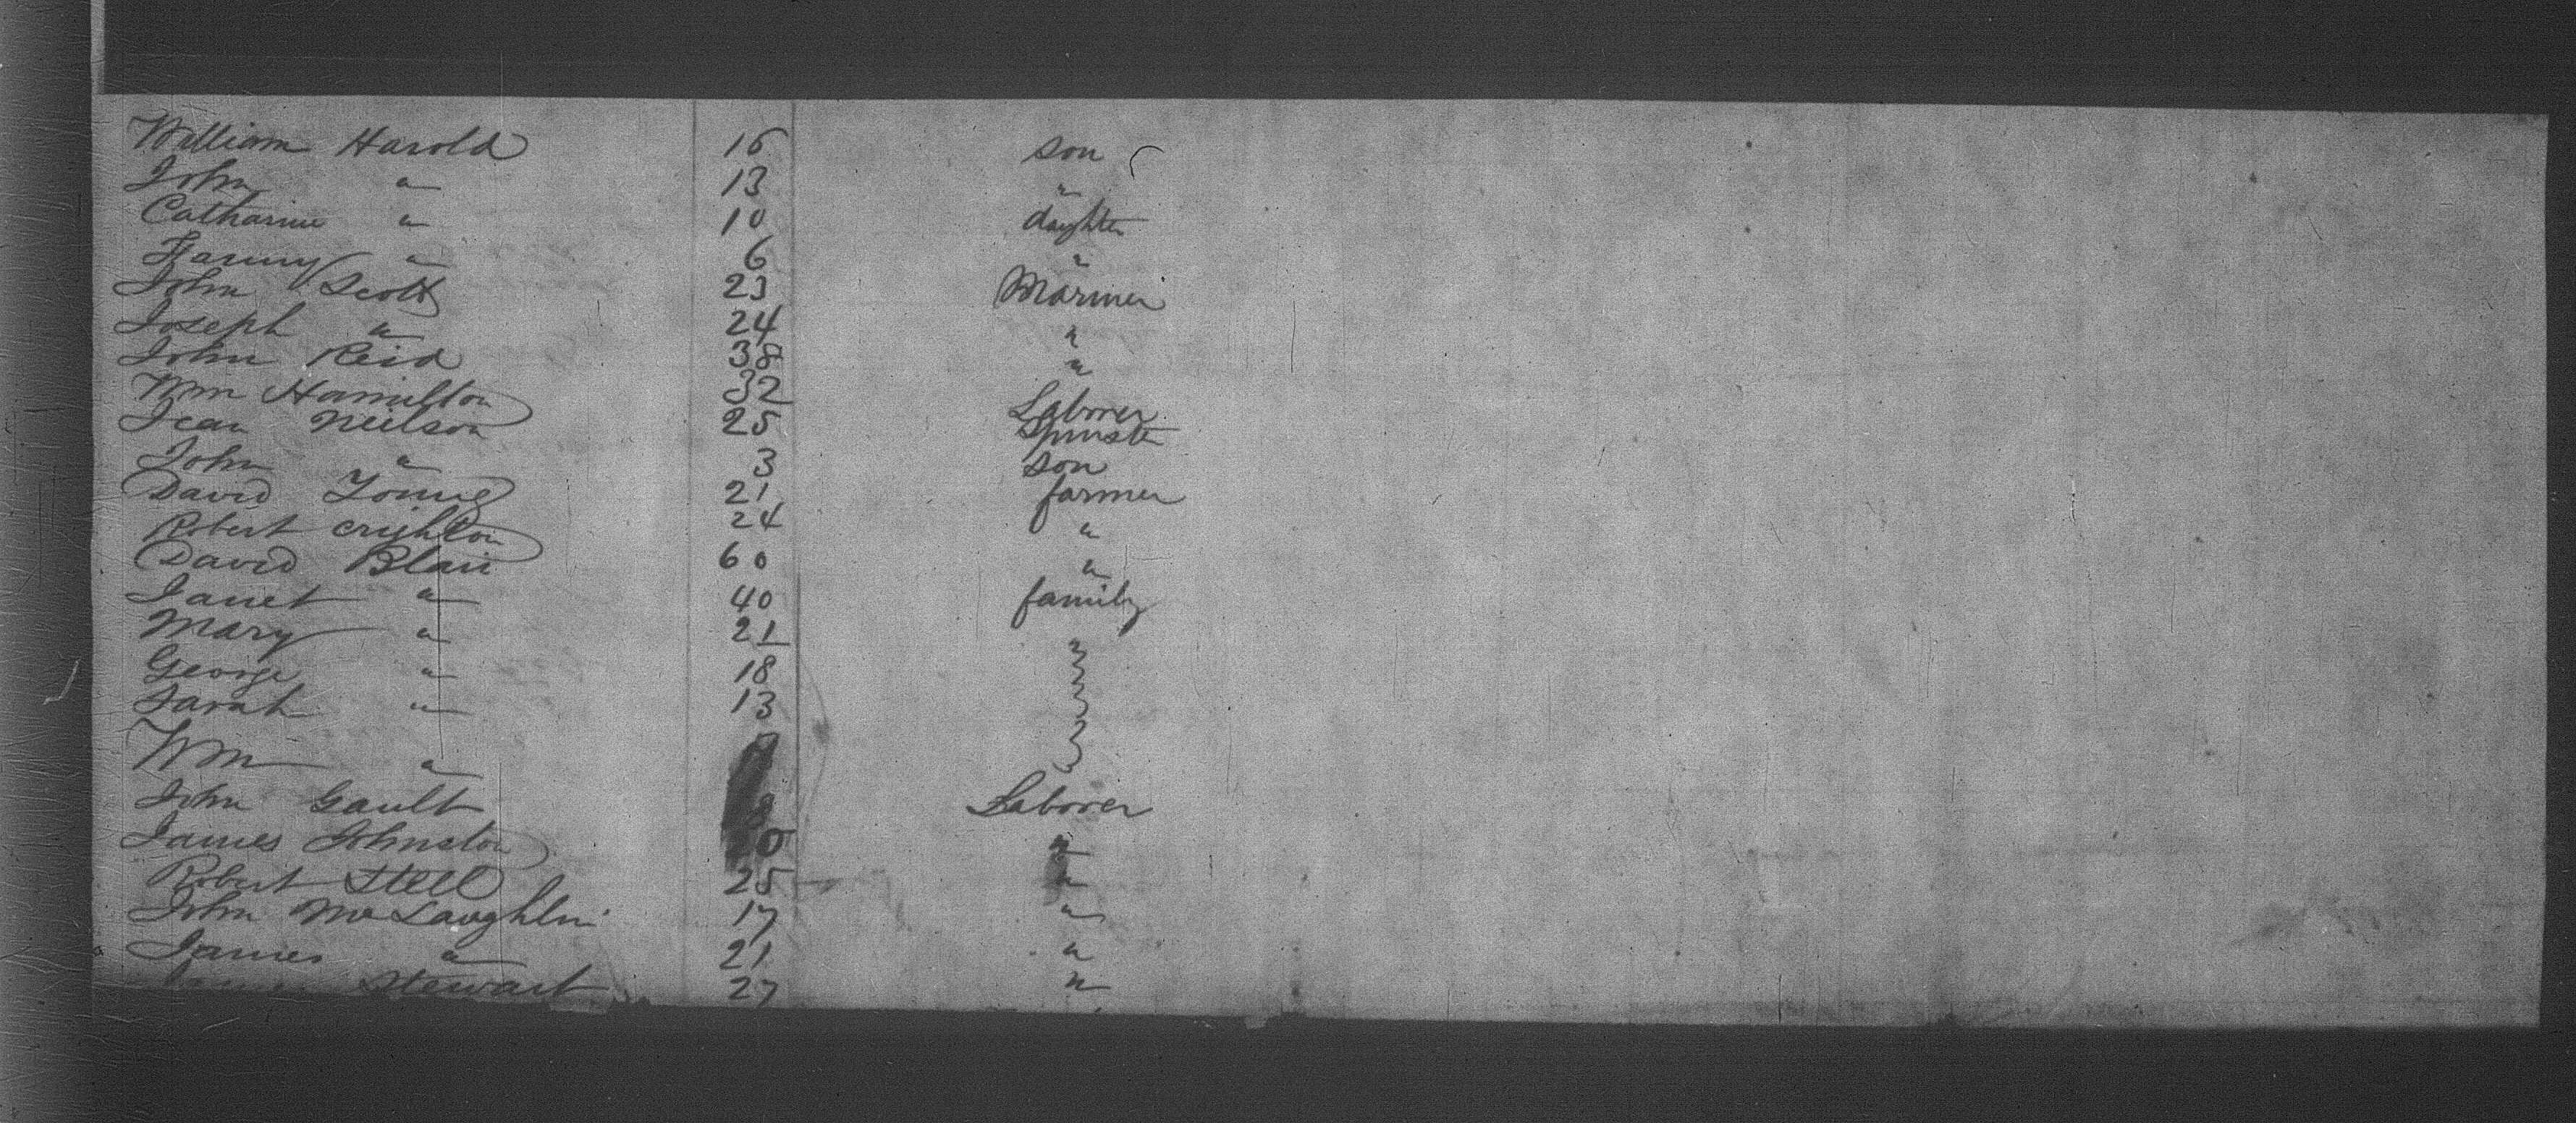 William Harold 16 son
John " 13 "
Catharine " 10 daughter
Fanny " 6 "
John Scott 23 Mariner
Joseph " 24 "
John Reid 38 "
Wm Hamilton 32 Laborer
Jean Neilson 25 Spinster
John " 3 son
David Young 21 farmer
Robert Crighton 24 "
David Blair 60 "
Janet " 40 family
Mary " 21 "
George " 18 "
Sarah " 13 "
Wm " "
John Gault Laborer
James Johnston "
Robert Steel 25 "
John McLaughlin 17 "
James " 21 "
Stewart 27 "